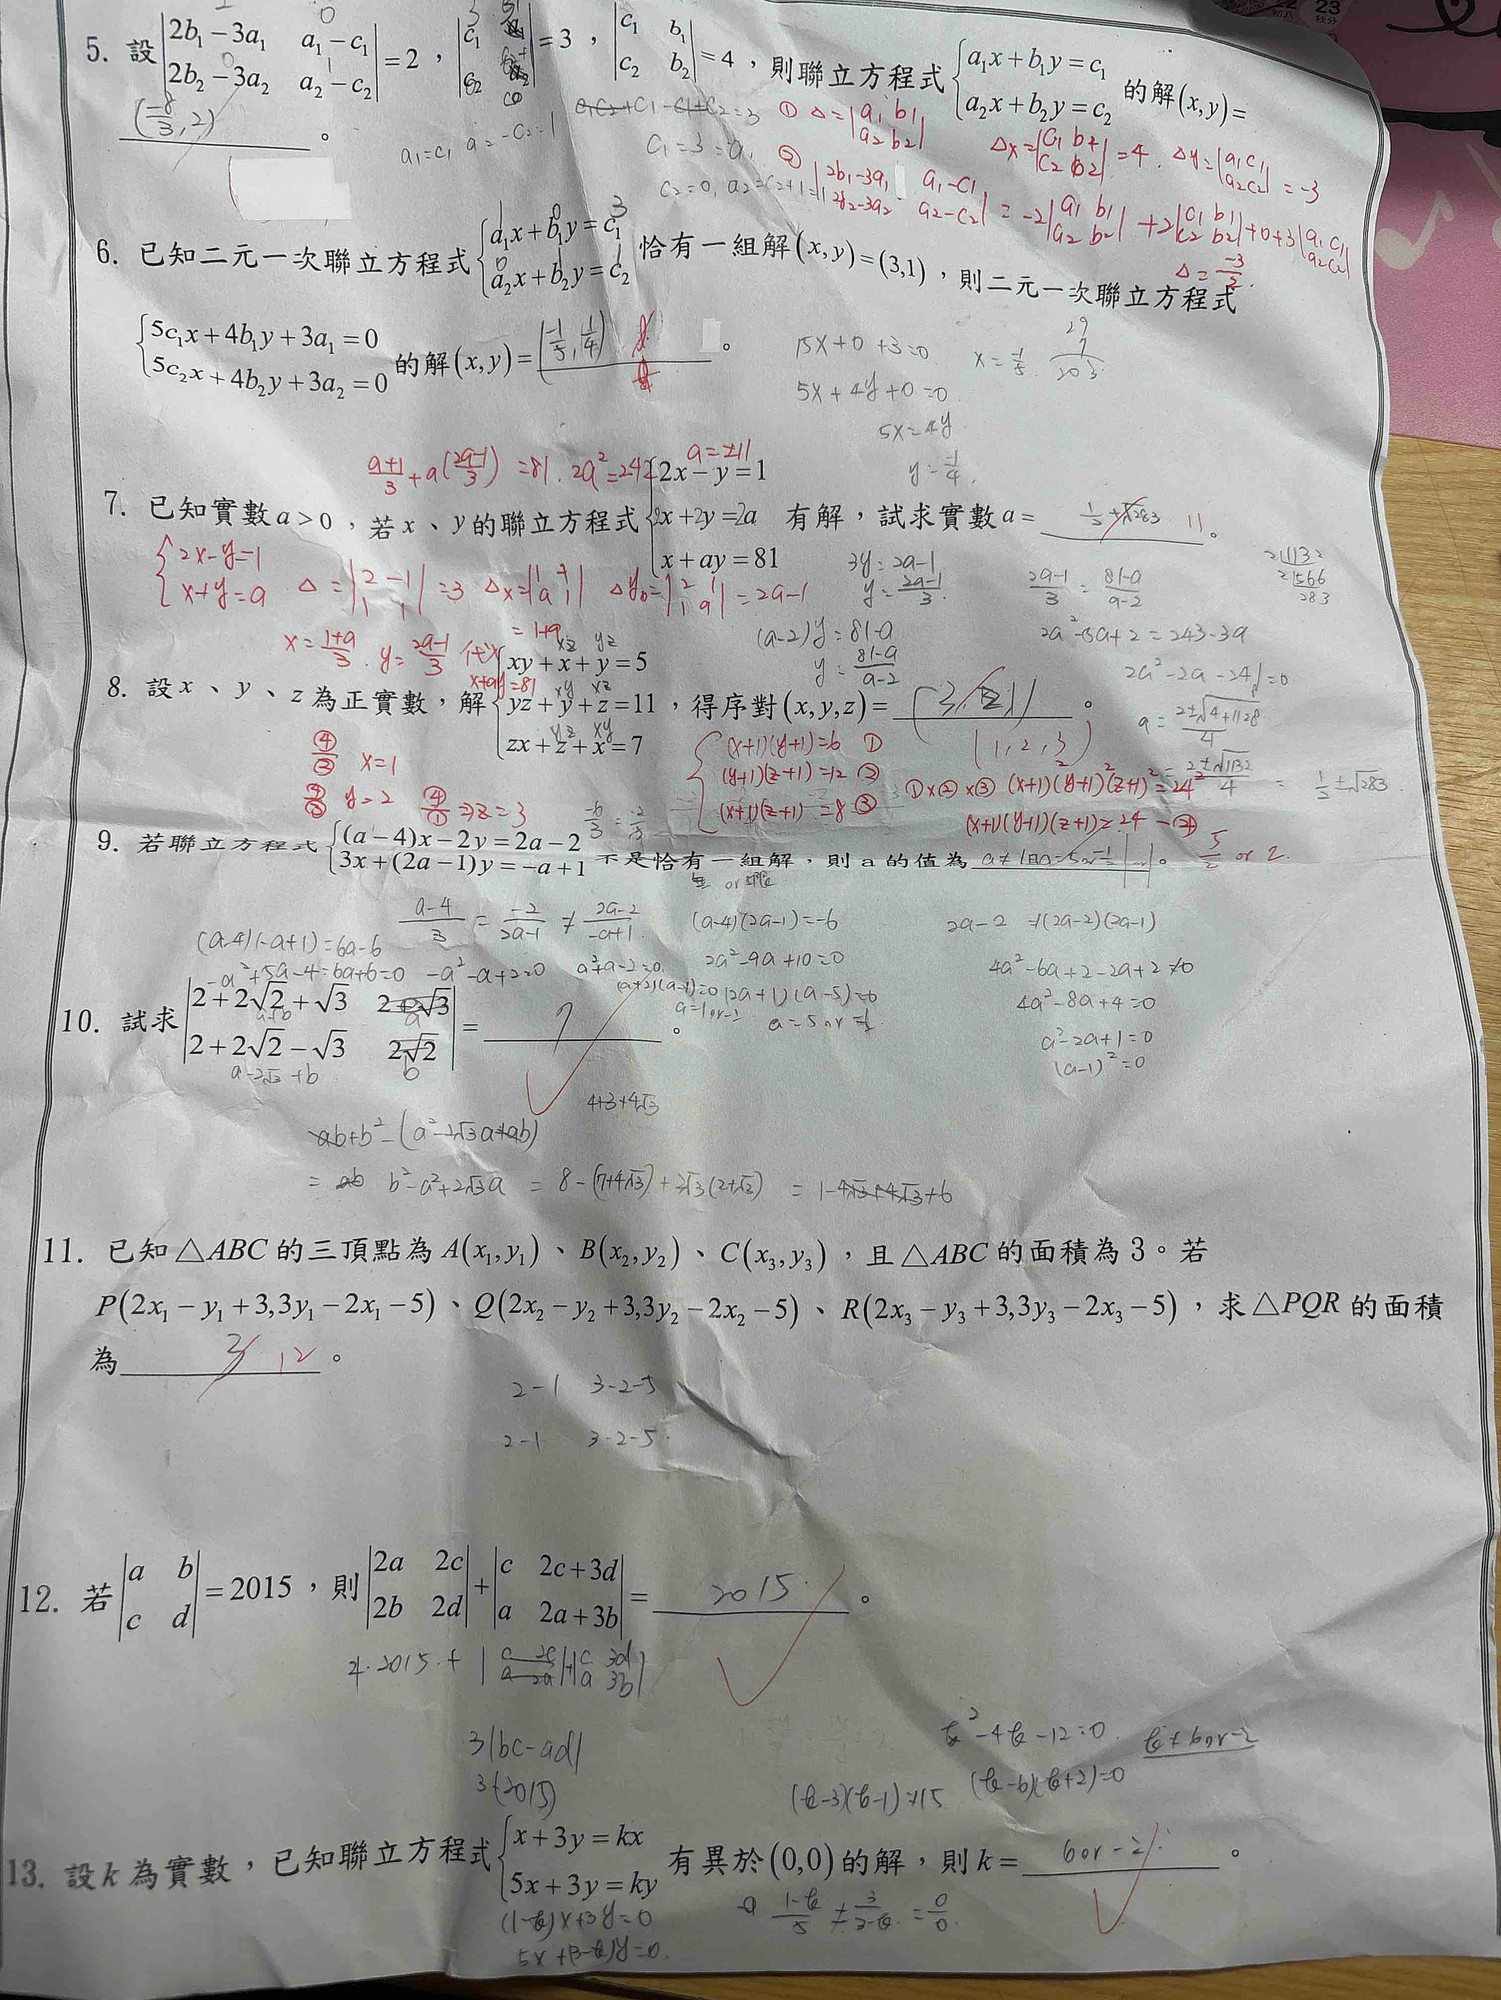 5. 設 |2b₁-3a₁ a₁-c₁; 2b₂-3a₂ a₂-c₂| = 2，|c₁; c₂| = 3，|c₁ b₁; c₂ b₂| = 4，則聯立方程式 {a₁x+b₁y=c₁; a₂x+b₂y=c₂ 的解(x,y)=
(-8/3, 2) 。
a₁=c₁
① Δ=|a₁ b₁; a₂ b₂| Δx=|c₁ b₁; c₂ b₂|=4. Δy=|a₁ c₁; a₂ c₂|=-3
② |2b₁-3a₁ a₁-c₁; 2b₂-3a₂ a₂-c₂| = -2|a₁ b₁; a₂ b₂|+2|c₁ b₁; c₂ b₂|+0+3|a₁ c₁; a₂ c₂|
Δ=-3/2
6. 已知二元一次聯立方程式 {a₁x+b₁y=c₁; a₂x+b₂y=c₂ 恰有一組解(x,y)=(3,1)，則二元一次聯立方程式
{5c₁x+4b₁y+3a₁=0; 5c₂x+4b₂y+3a₂=0 的解(x,y)= (-1/5, 1/4) 。
15x+0+3=0 x=-1/5
5x+4y+0=0
5x=4y
y=-1/4
(a+1)/3+a((2a-1)/3)=81. 2a²=242 a=±11
7. 已知實數a>0，若x、y的聯立方程式 {2x-y=1; 2x+2y=2a; x+ay=81 有解，試求實數a= 1/2+√283 11 。
{2x-y=1; x+y=a Δ=|2 -1; 1 1|=3 Δx=|1 -1; a 1|=1+a Δy=|2 1; 1 a|=2a-1
x=(1+a)/3. y=(2a-1)/3 代入 x+ay=81
3y=2a-1
y=(2a-1)/3
(a-2)y=81-a
y=(81-a)/(a-2)
(2a-1)/3=(81-a)/(a-2)
2a²-5a+2=243-3a
2a²-2a-241=0
a=(2±√(4+1128))/4
=(2±√1132)/4 = 1/2±√283
2|1132
2|566
283
8. 設x、y、z為正實數，解 {xy+x+y=5; yz+y+z=11; zx+z+x=7，得序對(x,y,z)= 。
(1,2,3)
{(x+1)(y+1)=6 ①
(y+1)(z+1)=12 ②
(x+1)(z+1)=8 ③
①×②×③ (x+1)²(y+1)²(z+1)²=24²
(x+1)(y+1)(z+1)=24 -④
④/② x=1
④/③ y=2 ④/① ⇒z=3
9. 若聯立方程式 {(a-4)x-2y=2a-2; 3x+(2a-1)y=-a+1 不是恰有一組解，則a的值為 。 5/2 or 2.
(a-4)/3 = -2/(2a-1) ≠ (2a-2)/(-a+1)
(a-4)(-a+1)=6a-6
-a²+5a-4=6a+6=0 -a²-a+2=0 a²+a-2=0
(a-4)(2a-1)=-6
2a²-9a+10=0
(2a+1)(a-5)=0
2a-2 =1(2a-2)(2a-1)
4a²-6a+2-2a+2≠0
4a²-8a+4=0
a²-2a+1=0
(a-1)²=0
10. 試求 |2+2√2+√3 2+√3; 2+2√2-√3 2√2| = 7 。
a-2√3+b b
4+3+4√3
ab+b²-(a²-2√3a+ab)
= ab b²-a²+2√3a = 8-(7+4√3)+2√3(2+√3) = 1-4√3+4√3+6
11. 已知△ABC的三頂點為A(x₁,y₁)、B(x₂,y₂)、C(x₃,y₃)，且△ABC的面積為3。若
P(2x₁-y₁+3,3y₁-2x₁-5)、Q(2x₂-y₂+3,3y₂-2x₂-5)、R(2x₃-y₃+3,3y₃-2x₃-5)，求△PQR的面積
為 3 12 。
2-1 3-2-5
2-1 3-2-5
12. 若 |a b; c d| = 2015，則 |2a 2c; 2b 2d| + |c 2c+3d; a 2a+3b| = 2015 。
4.2015.+ |c 2c; a 2a|+|c 3d; a 3b|
3|bc-ad|
3(-2015)
k²-4k-12=0. k≠6or-2
(k-3)(k-1)=15 (k-6)(k+2)=0
13. 設k為實數，已知聯立方程式 {x+3y=kx; 5x+3y=ky 有異於(0,0)的解，則k= 6or-2 。
(1-k)x+3y=0
5x+(3-k)y=0.
(1-k)/5 ≠ 3/(3-k) = 0/0.